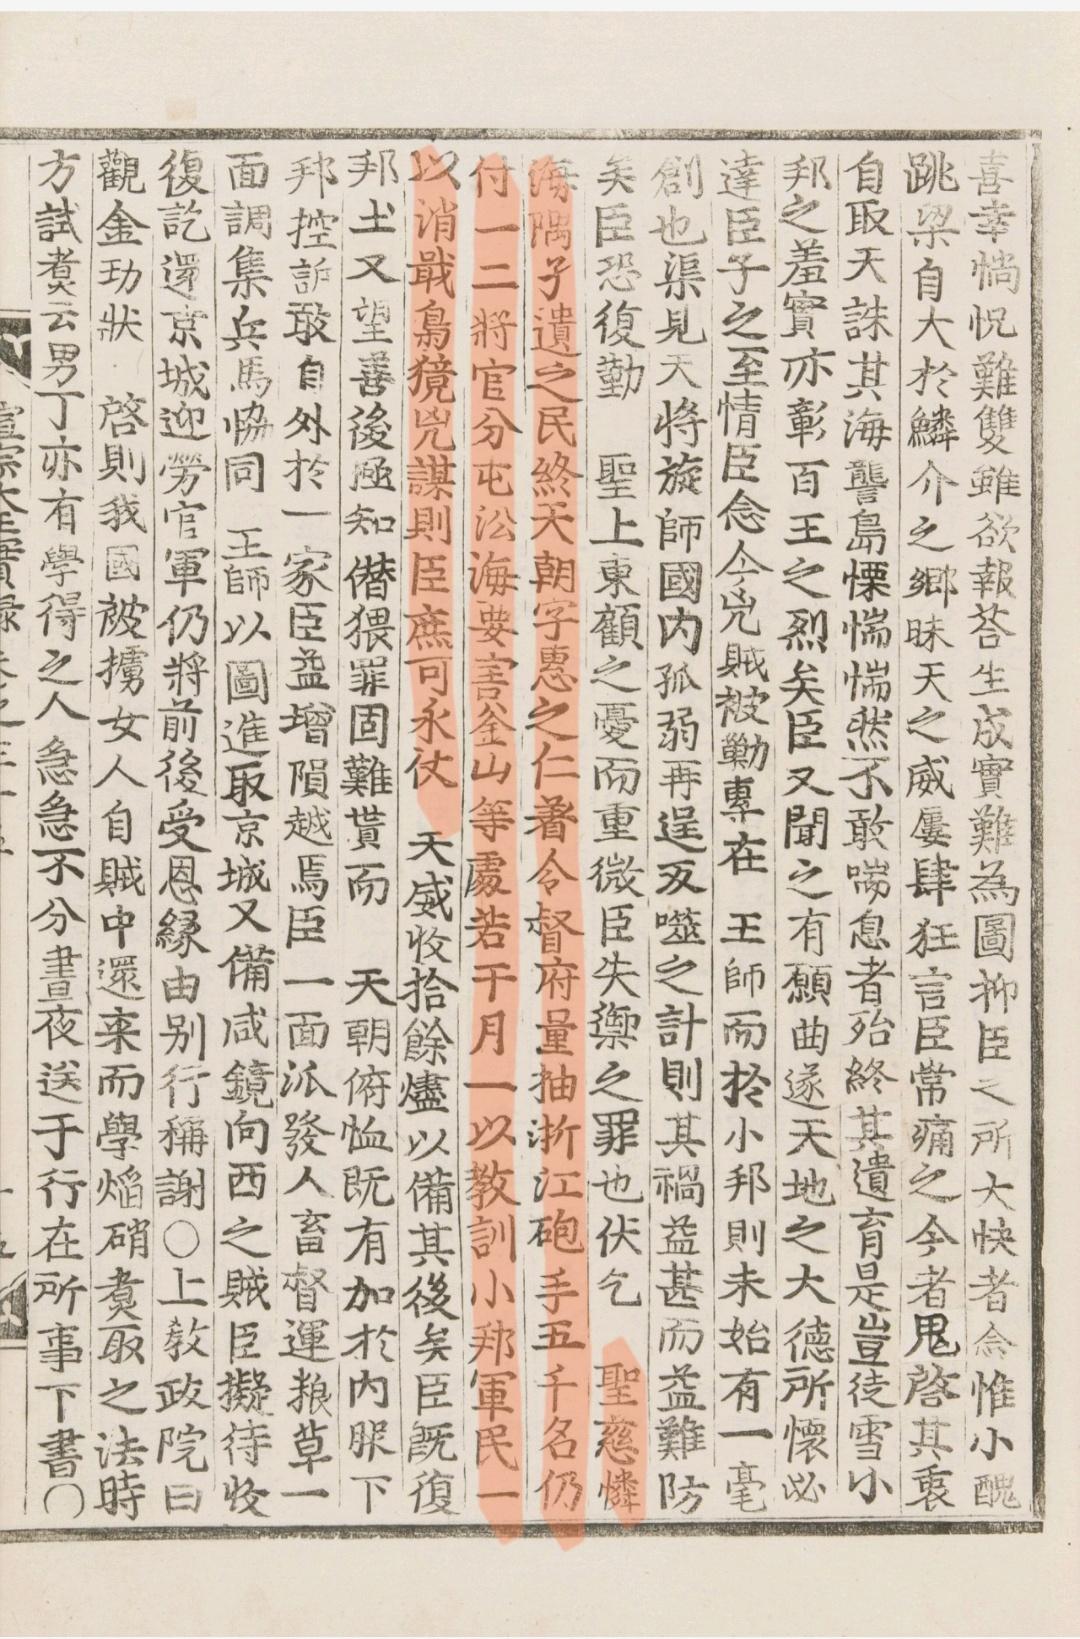 喜幸惝怳難雙雖欲報荅生成實難為圖抑臣之所大快者念惟小醜
跳梁自大於鱗介之鄉昧天之威屢肆狂言臣常痛之今者鬼啓其衷
自取天誅其海讋島慄惴惴然不敢喘息者殆終其遺育是豈徒雪小
邦之羞實亦彰百王之烈矣臣又聞之有願曲遂天地之大德所懷必
達臣子之至情臣念今兇賊被勦專在 王師而於小邦則未始有一毫
創也渠見天將旋師國內孤弱再逞反噬之計則其禍益甚而益難防
矣臣恐復勤 聖上東顧之憂而重微臣失禦之罪也伏乞 聖慈憐
海隅孑遺之民終天朝字惠之仁著令督府量抽浙江砲手五千名仍
付一二將官分屯沿海要害釜山等處若干月一以教訓小邦軍民一
以消戢鳥獍兇謀則臣庶可永仗 天威收拾餘燼以備其後矣臣旣復
邦土又望善後極知僭猥罪固難貰而 天朝俯恤旣有加於內服下
邦控訴敢自外於一家臣益增隕越焉臣一面派發人畜督運粮草一
面調集兵馬恊同 王師以圖進取京城又備咸鏡向西之賊臣擬待收
復訖還京城迎勞官軍仍將前後受恩縁由別行稱謝○上敎政院曰
觀金㓛狀 啓則我國被擄女人自賊中還来而學焰硝煑取之法時
方試煑云男丁亦有學得之人急急不分晝夜送于行在所事下書○
宣宗大王實錄